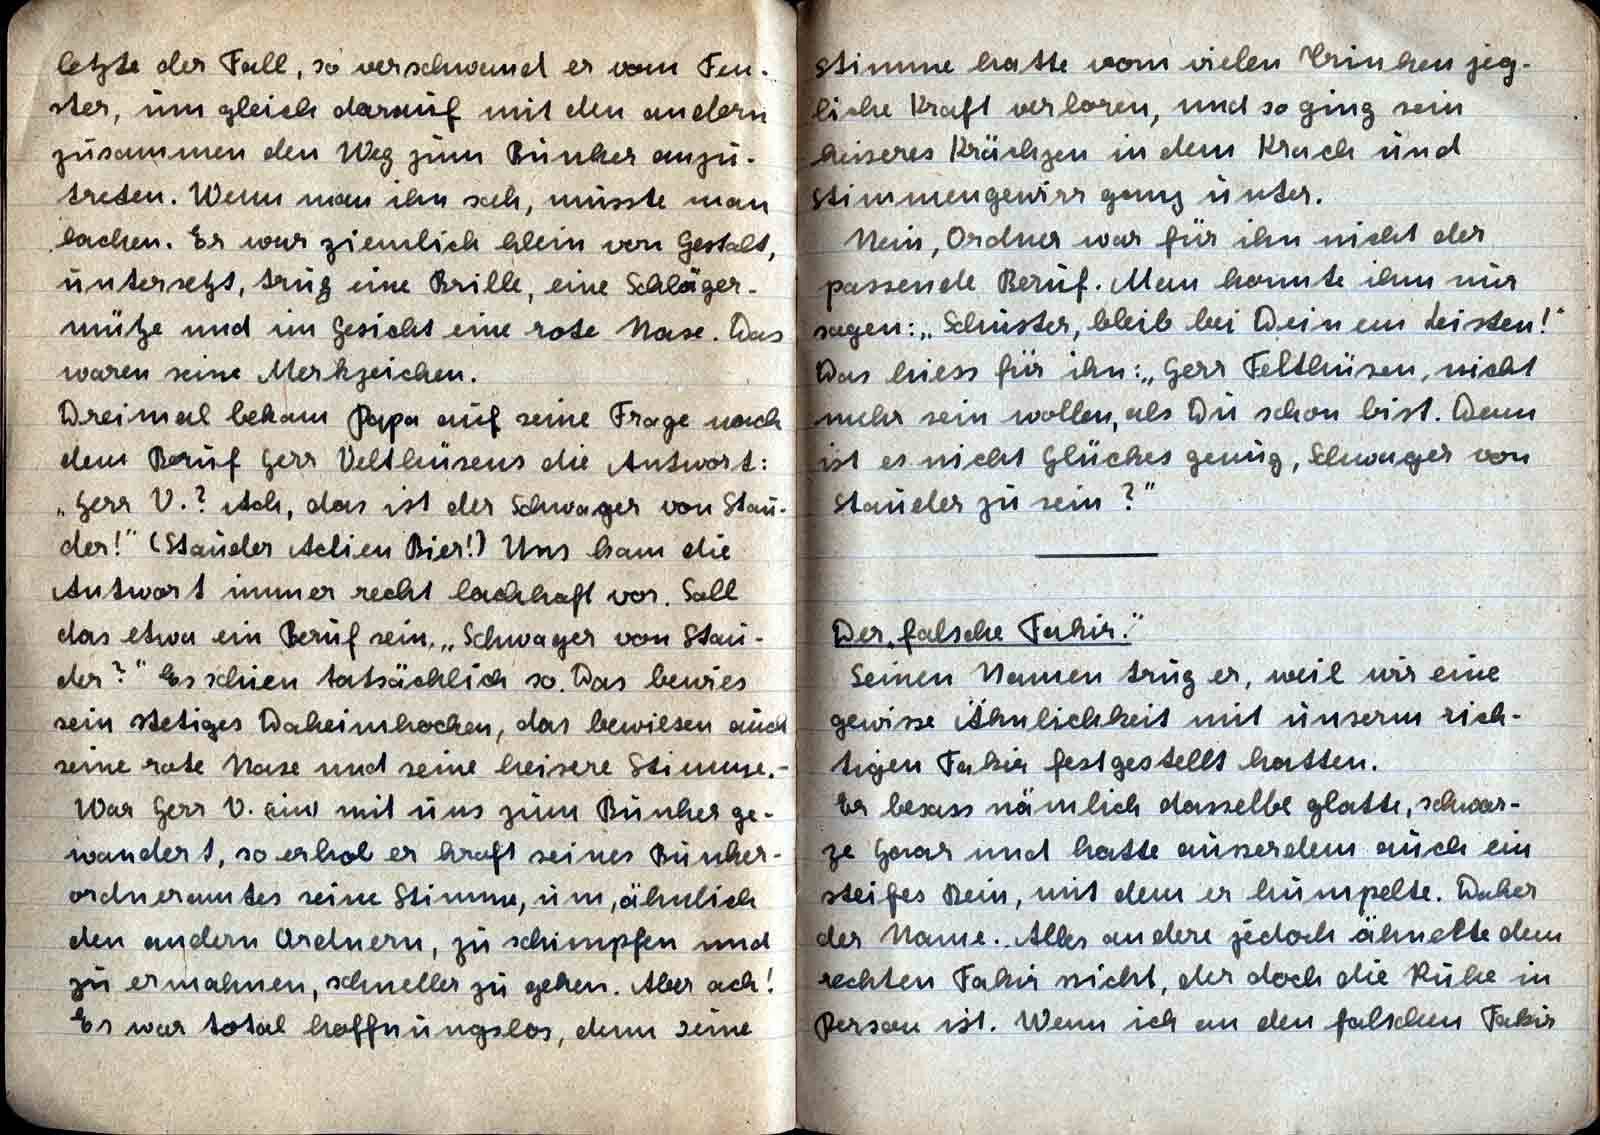 letzte der Fall, so verschwand er vom Fen-
ster, um gleich darauf mit den andern
zusammen den Weg zum Bunker anzu-
treten. Wenn man ihn sah, musste man
lachen. Er war ziemlich klein von Gestalt,
untersetzt, trug eine Brille, eine Schläger-
mütze und im Gesicht eine rote Nase. Das
waren seine Merkzeichen.
Dreimal bekam Papa auf seine Frage nach
dem Beruf Herr Velthusens die Antwort:
„Herr V.? Ach, das ist der Schwager von Stau-
der!" (Stauder Actien Bier!) Uns kam die
Antwort immer recht lachhaft vor. Soll
das etwa ein Beruf sein, „Schwager von Stau-
der?" Es schien tatsächlich so. Das bewies
sein stetiges Daheimhocken, das bewiesen auch
seine rote Nase und seine heisere Stimme.-
War Herr V. mit uns zum Bunker ge-
wandert, so erhob er kraft seines Bunker-
ordneramtes seine Stimme, um, ähnlich
den andern Ordnern, zu schimpfen und
zu ermahnen, schneller zu gehen. Aber ach!
Es war total hoffnungslos, denn seine
Stimme hatte vom vielen Trinken jeg-
liche Kraft verloren, und so ging sein
heiseres Krächzen in dem Krach und
Stimmengewirr ganz unter.
Nein, Ordner war für ihn nicht der
passende Beruf. Man konnte ihm nur
sagen: „Schuster, bleib bei Deinem Leisten!"
Das hiess für ihn: „Herr Felthusen, nicht
mehr sein wollen, als Du schon bist. Denn
ist es nicht Glückes genug, Schwager von
Stauder zu sein?"
Der „falsche Fakir."
Seinen Namen trug er, weil wir eine
gewisse Ähnlichkeit mit unserm rich-
tigen Fakir festgestellt hatten.
Er besass nämlich dasselbe glatte, schwar-
ze Haar und hatte ausserdem auch ein
steifes Bein, mit dem er humpelte. Daher
der Name. Alles andere jedoch ähnelte dem
rechten Fakir nicht, der doch die Ruhe in
Person ist. Wenn ich an den falschen Fakir